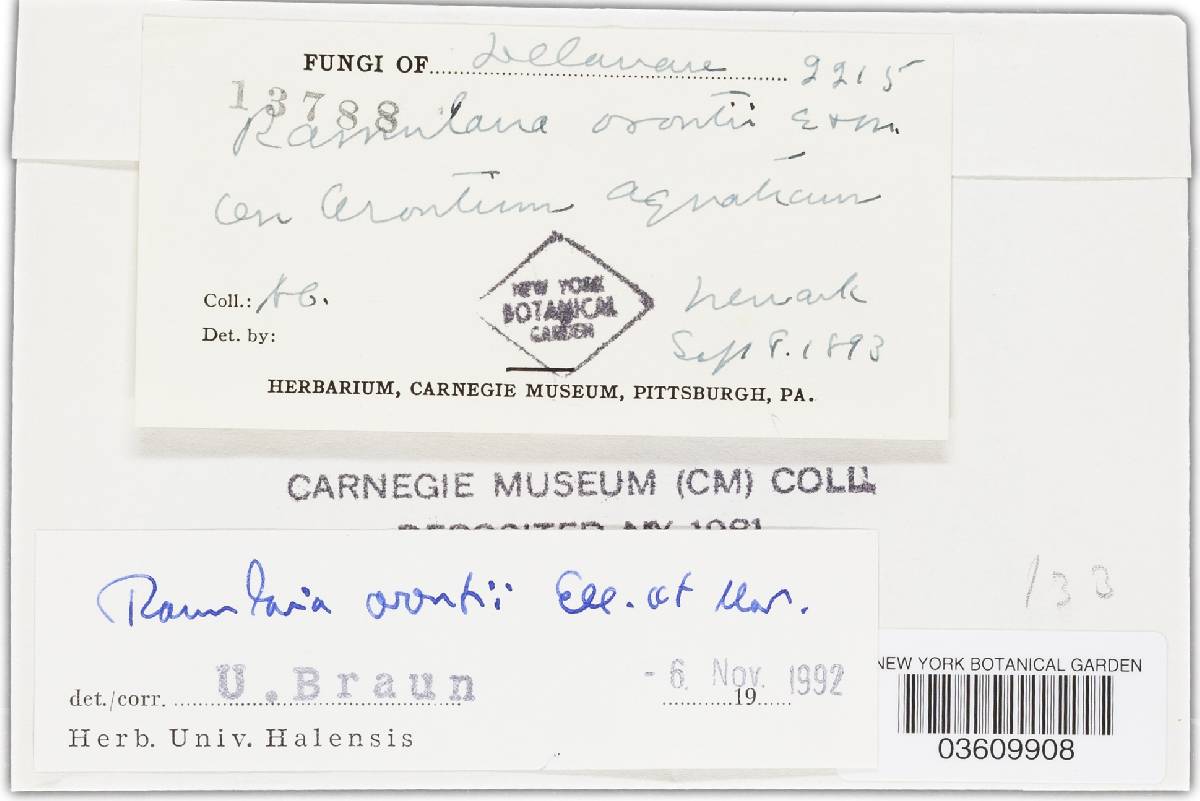 FUNGI OF Delaware 2215
13788
Ramularia orontii E & M.
On Orontium aquaticum
Coll.:
NEW YORK
BOTANICAL
GARDEN
Newark
Det. by:
Sept 8. 1893
HERBARIUM, CARNEGIE MUSEUM, PITTSBURGH, PA.
CARNEGIE MUSEUM (CM) COLL
DEPOSITED NY 1981
Ramularia orontii Ell. et Mar.
133
det./corr. U. Braun - 6. Nov. 1992
19
Herb. Univ. Halensis
NEW YORK BOTANICAL GARDEN
03609908